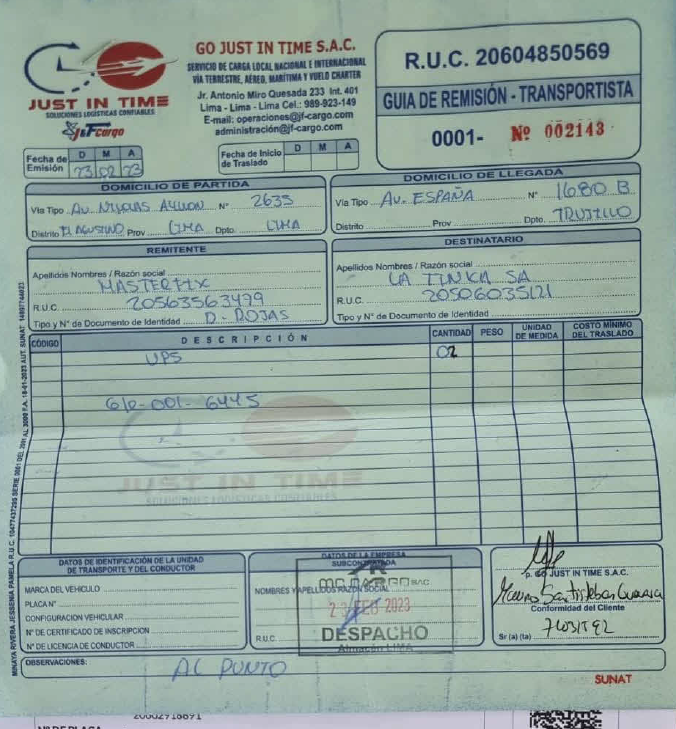 JUST IN TIME
SOLUCIONES LOGÍSTICAS CONFIABLES
J&F Cargo
GO JUST IN TIME S.A.C.
SERVICIO DE CARGA LOCAL NACIONAL E INTERNACIONAL
VÍA TERRESTRE, AÉREO, MARÍTIMA Y VUELO CHARTER
Jr. Antonio Miro Quesada 233 Int. 401
Lima - Lima - Lima Cel.: 989-923-149
E-mail: operaciones@jf-cargo.com
administración@jf-cargo.com
R.U.C. 20604850569
GUIA DE REMISIÓN - TRANSPORTISTA
0001- Nº 002143
Fecha de Emisión D M A
23 02 23
Fecha de Inicio de Traslado D M A
DOMICILIO DE PARTIDA
Vía Tipo AV. NICOLAS AYLLON Nº 2633
Distrito EL AGUSTINO Prov LIMA Dpto. LIMA
DOMICILIO DE LLEGADA
Vía Tipo AV. ESPAÑA Nº 1680 B
Distrito Prov Dpto. TRUJILLO
REMITENTE
Apellidos Nombres / Razón social
MASTERFIX
R.U.C. 20563563499
Tipo y Nº de Documento de Identidad D - ROJAS
DESTINATARIO
Apellidos Nombres / Razón social
LA TINKA SA
R.U.C. 20506035121
Tipo y Nº de Documento de Identidad
CÓDIGO DESCRIPCIÓN CANTIDAD PESO UNIDAD DE MEDIDA COSTO MÍNIMO DEL TRASLADO
UPS 02
610-001-6445
JUST IN TIME
SOLUCIONES LOGÍSTICAS CONFIABLES
DATOS DE IDENTIFICACIÓN DE LA UNIDAD
DE TRANSPORTE Y DEL CONDUCTOR
MARCA DEL VEHICULO
PLACA Nº
CONFIGURACION VEHICULAR
Nº DE CERTIFICADO DE INSCRIPCION
Nº DE LICENCIA DE CONDUCTOR
DATOS DE LA EMPRESA
SUBCONTRATADA
NOMBRES Y APELLIDOS RAZÓN SOCIAL
R.U.C
MC CARGO SAC
FEB 2023
DESPACHO
Almacén LIMA
p. GO JUST IN TIME S.A.C.
Conformidad del Cliente
Sr (a) (ta)
OBSERVACIONES: AL PUNTO
SUNAT